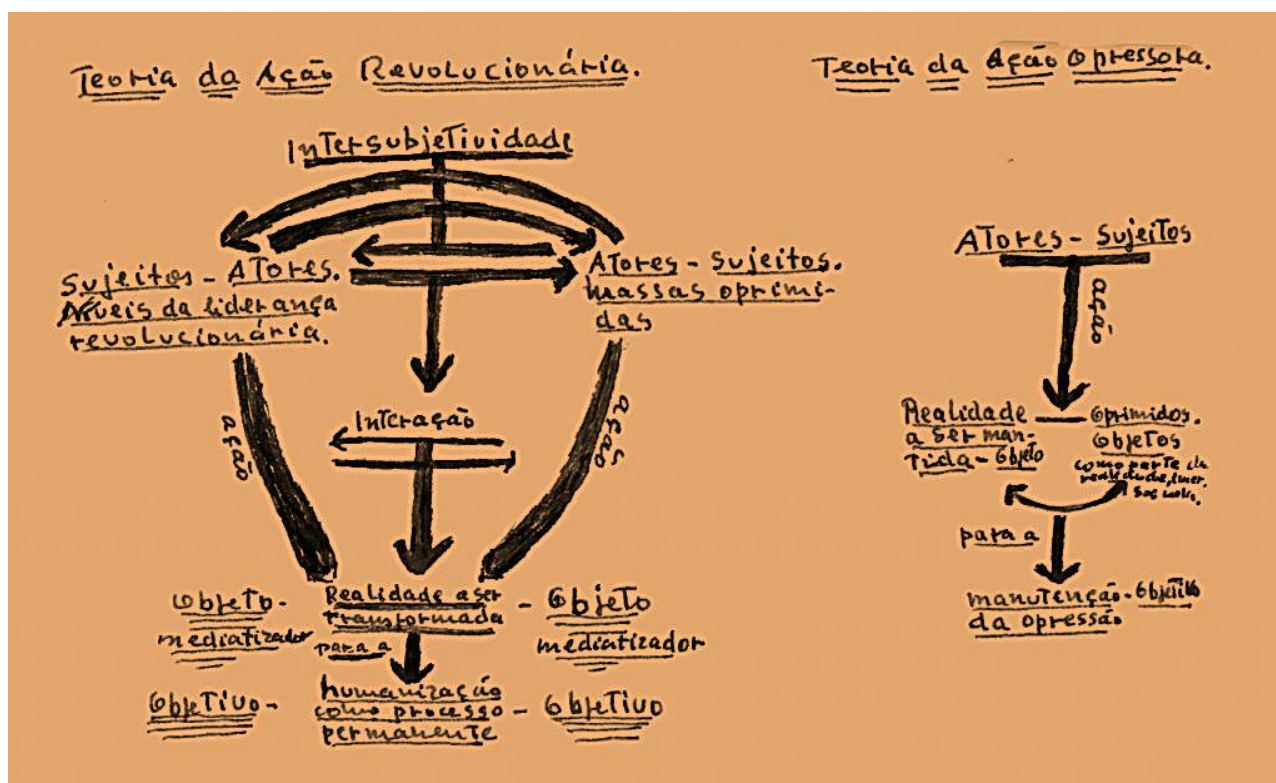 Teoria da Ação Revolucionária.
Intersubjetividade
Sujeitos - Atores.
Níveis da liderança
revolucionária.
Atores - Sujeitos.
massas oprimi-
das
ação
Interação
ação
Objeto-
mediatizador
Realidade a ser
transformada
- Objeto
mediatizador
para a
Objetivo -
humanização
como processo
permanente
- Objetivo
Teoria da Ação Opressora.
Atores - Sujeitos
ação
Realidade
a ser man-
tida - Objeto
Oprimidos.
Objetos
como parte da
realidade,
para a
manutenção - Objetivo
da opressão.